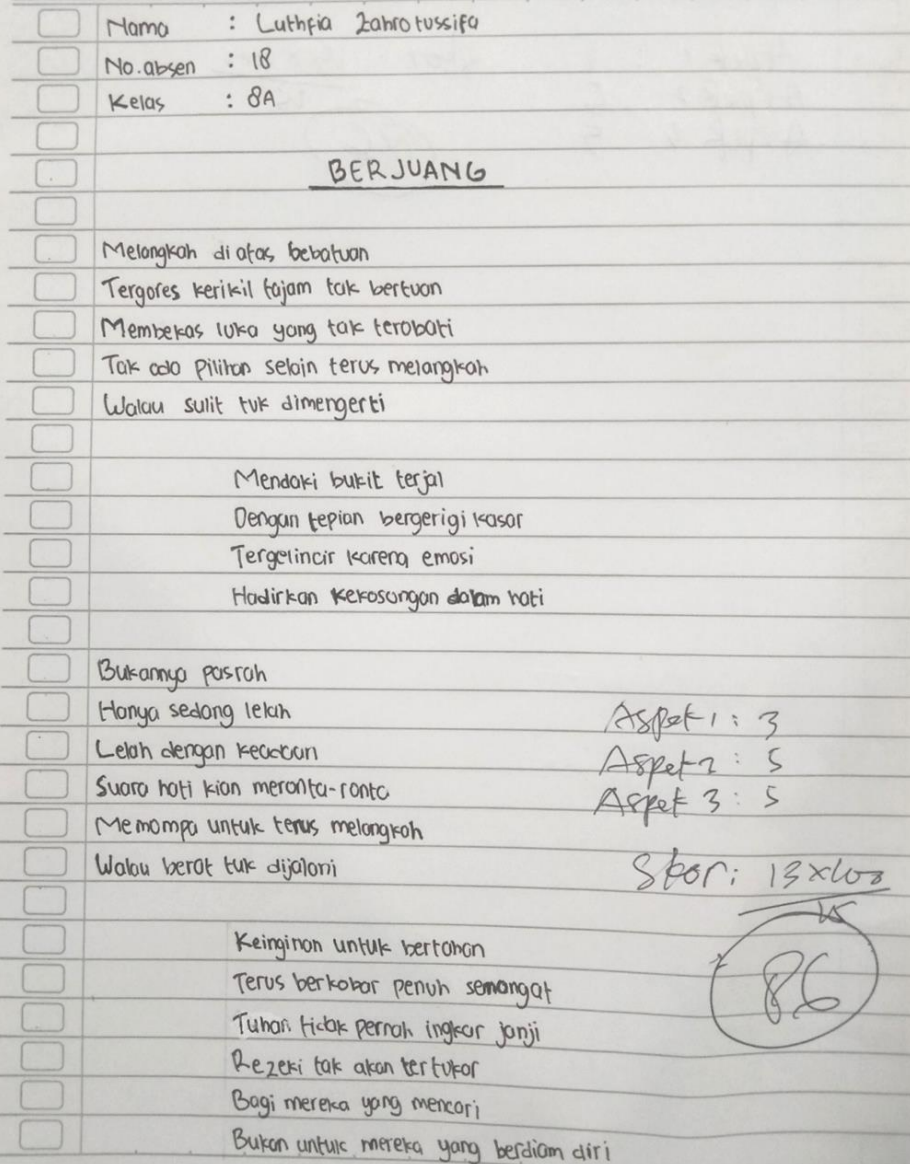 Nama : Luthfia Zahrotussifa
No. absen : 18
Kelas : 8A
BERJUANG
Melangkah di atas bebatuan
Tergores kerikil tajam tak bertuan
Membekas luka yang tak terobati
Tak ada pilihan selain terus melangkah
Walau sulit tuk dimengerti
Mendaki bukit terjal
Dengan tepian bergerigi kasar
Tergelincir karena emosi
Hadirkan kekosongan dalam hati
Bukannya pasrah
Hanya sedang lelah
Lelah dengan keadaan
Suara hati kian meronta-ronta
Memompa untuk terus melangkah
Walau berat tuk dijalani
Aspek 1 : 3
Aspek 2 : 5
Aspek 3 : 5
Skor : 13 x 100
15
86
Keinginan untuk bertahan
Terus berkobar penuh semangat
Tuhan tidak pernah ingkar janji
Rezeki tak akan tertukar
Bagi mereka yang mencari
Bukan untuk mereka yang berdiam diri